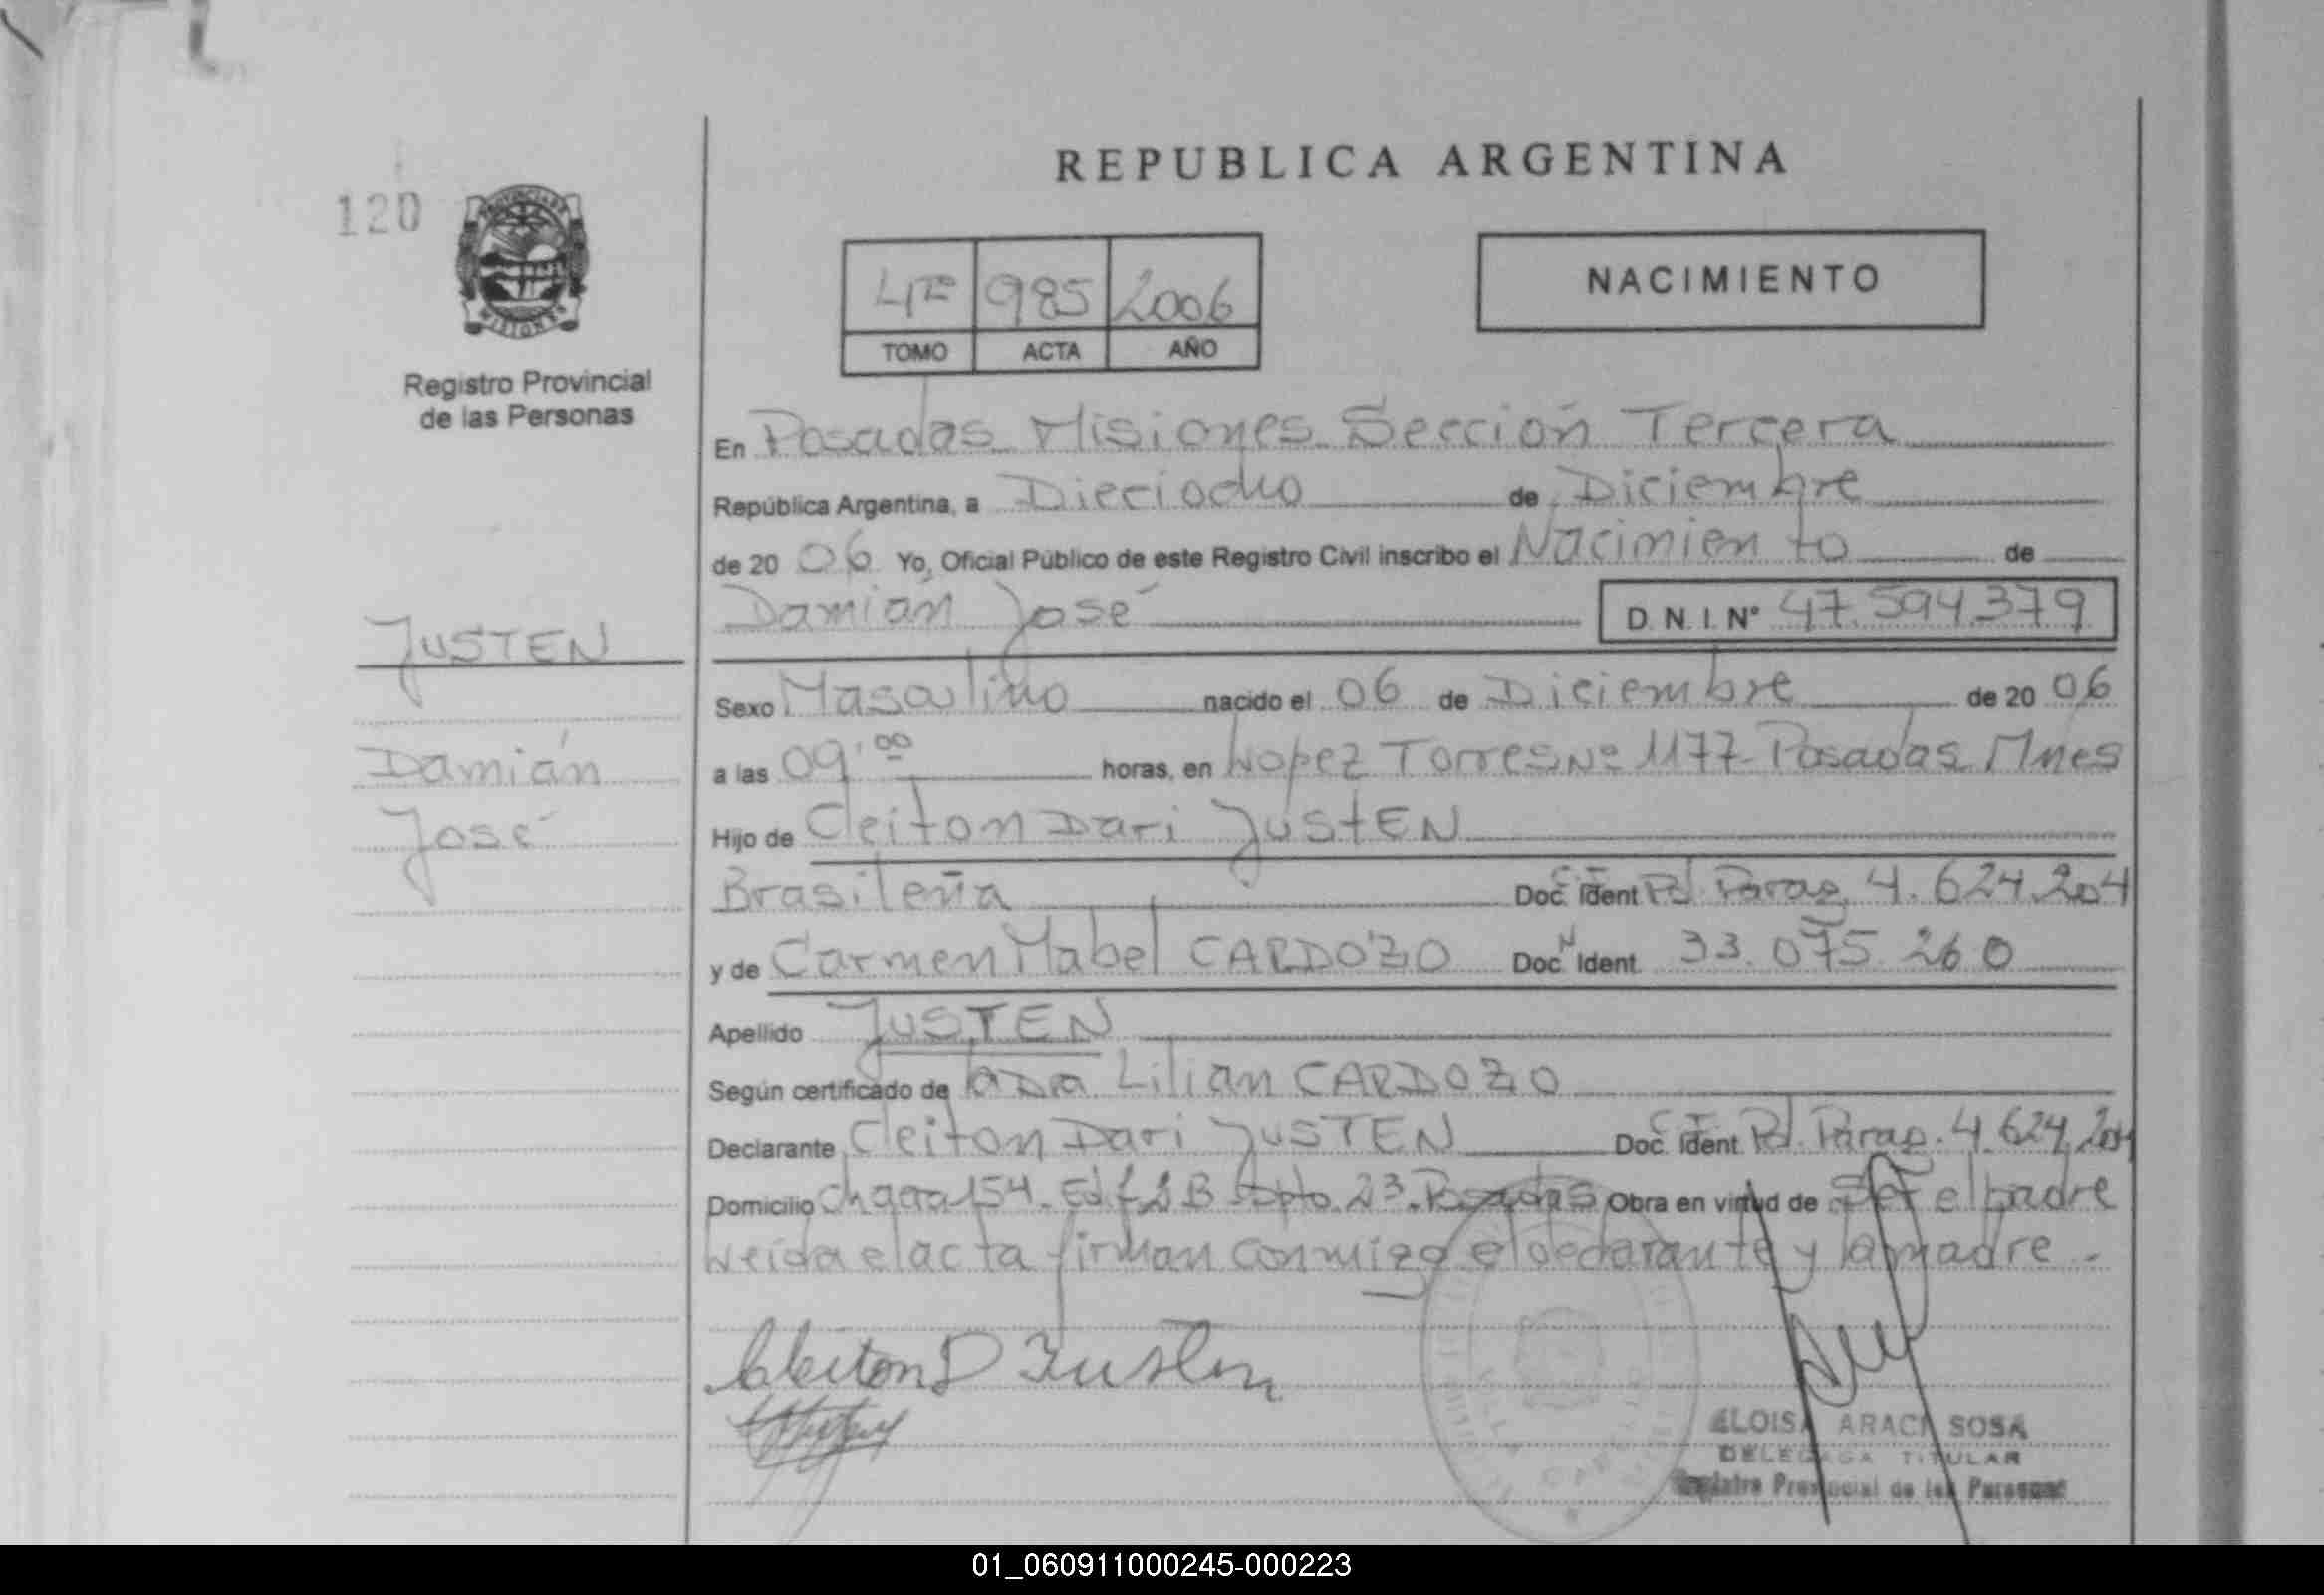 REPUBLICA ARGENTINA
120
PROVINCIA DE
MISIONES
Registro Provincial
de las Personas
4º 985 2006
TOMO ACTA AÑO
NACIMIENTO
En Posadas Misiones Sección Tercera
República Argentina, a Dieciocho de Diciembre
de 20 06 Yo, Oficial Público de este Registro Civil inscribo el Nacimiento de
Damián José D.N.I. Nº 47.594.379
JUSTEN
Damián
José
Sexo Masculino nacido el 06 de Diciembre de 20 06
a las 09:00 horas, en Lopez Torres Nº 1177 Posadas Mnes
Hijo de Cleiton Dari JUSTEN
Brasileña Doc. Ident C.I. Pol. Parag. 4.624.204
y de Carmen Mabel CARDOZO Doc. N Ident. 33.075.260
Apellido JUSTEN
Según certificado de Lilian CARDOZO
Declarante Cleiton Dari JUSTEN Doc. Ident C.I. Pol. Parag. 4.624.204
Domicilio Chacra 154 Edif 2B Dpto. 23. Posadas Obra en virtud de Ser el padre
Leída el acta firman conmigo el declarante y la madre.
Cleiton D Justen
ELOISA ARACI SOSA
DELEGADA TITULAR
Registro Provincial de las Personas
01_060911000245-000223